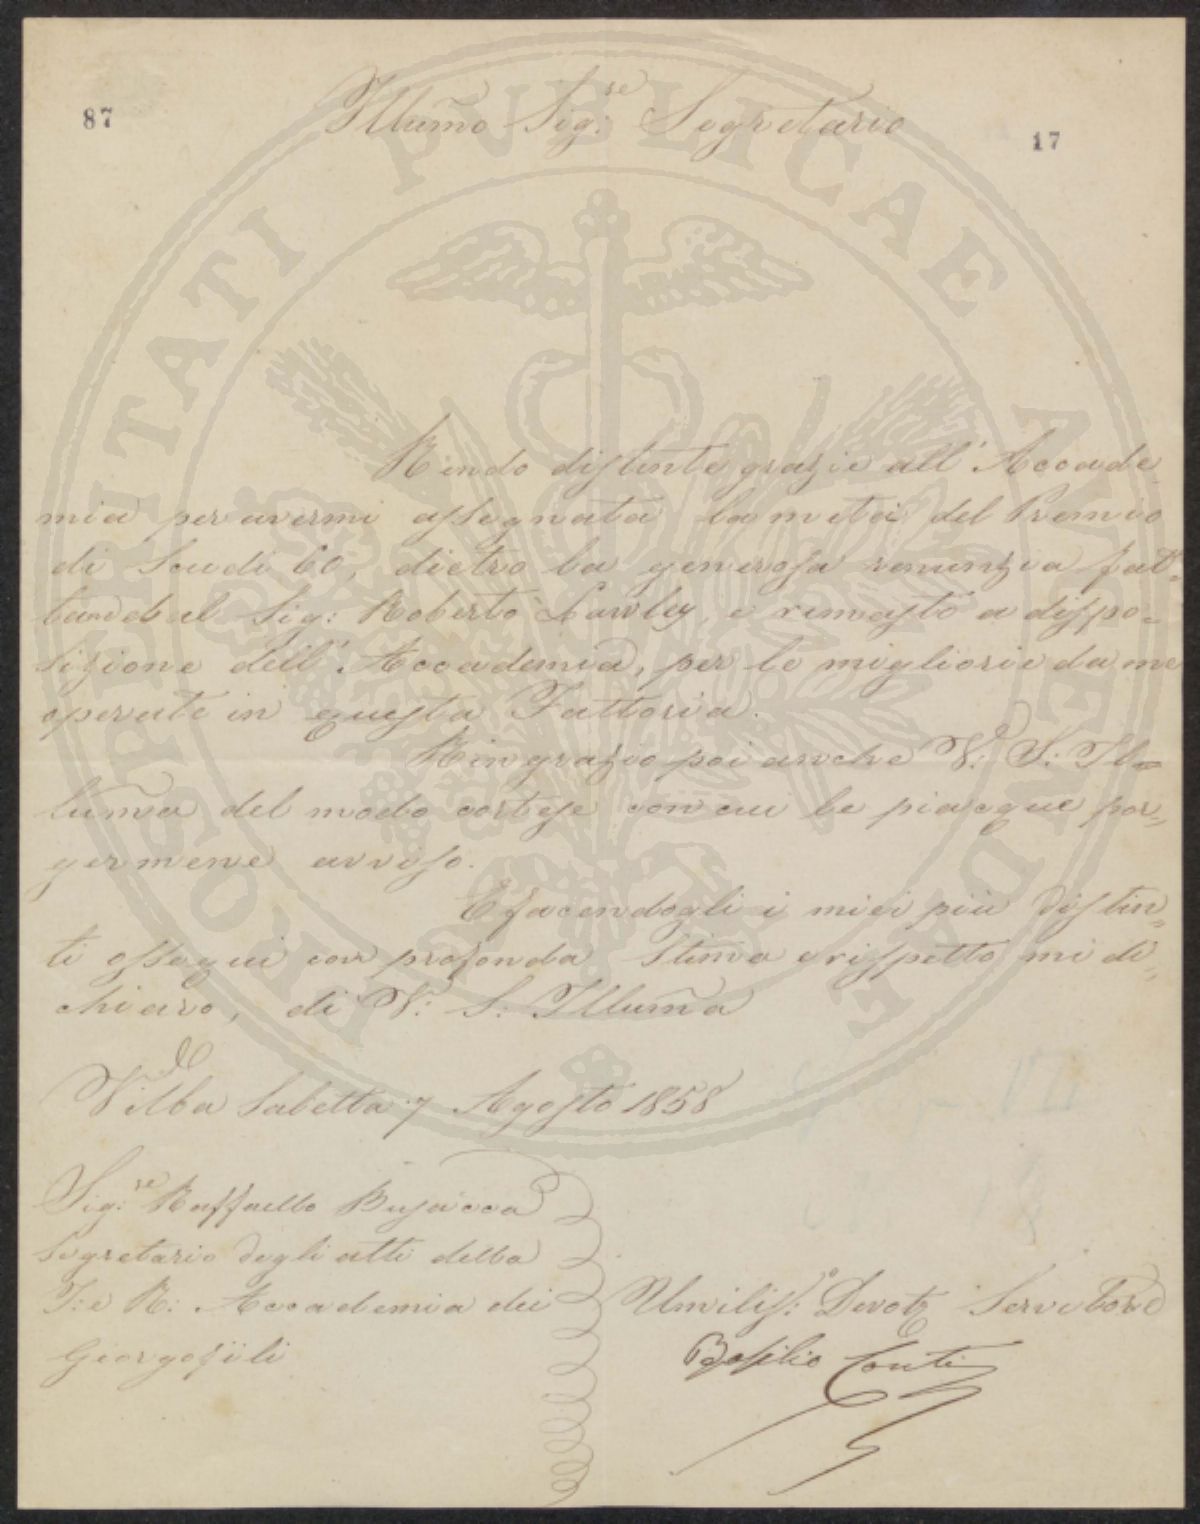 87
Illumo Sig:re Segretario
17
Rendo distinte grazie all' Accade
mia per avermi assegnata la metà del Premio
di Scudi 60, dietro la generosa renunzia fat=
ta dal Sig: Roberto Lawley, e rimasto a dispo=
sizione dell' Accademia, per le migliorie da me
operate in questa Fattoria.
Ringrazio poi anche V: S: Il=
luma del modo cortese con cui le piacque por=
germene avviso.
E facendogli i miei più distin=
ti ossequi con profonda stima e rispetto mi di=
chiaro, di V: S: Illuma
Villa Sabetta 7 Agosto 1858
Sig:re Raffaello Busacca
Segretario degli atti della
I: e R: Accademia dei
Giorgofili
Umilis: Devoto Servitore
Basilio Conti
PROSPERITATI PUBLICAE AUGENDAE